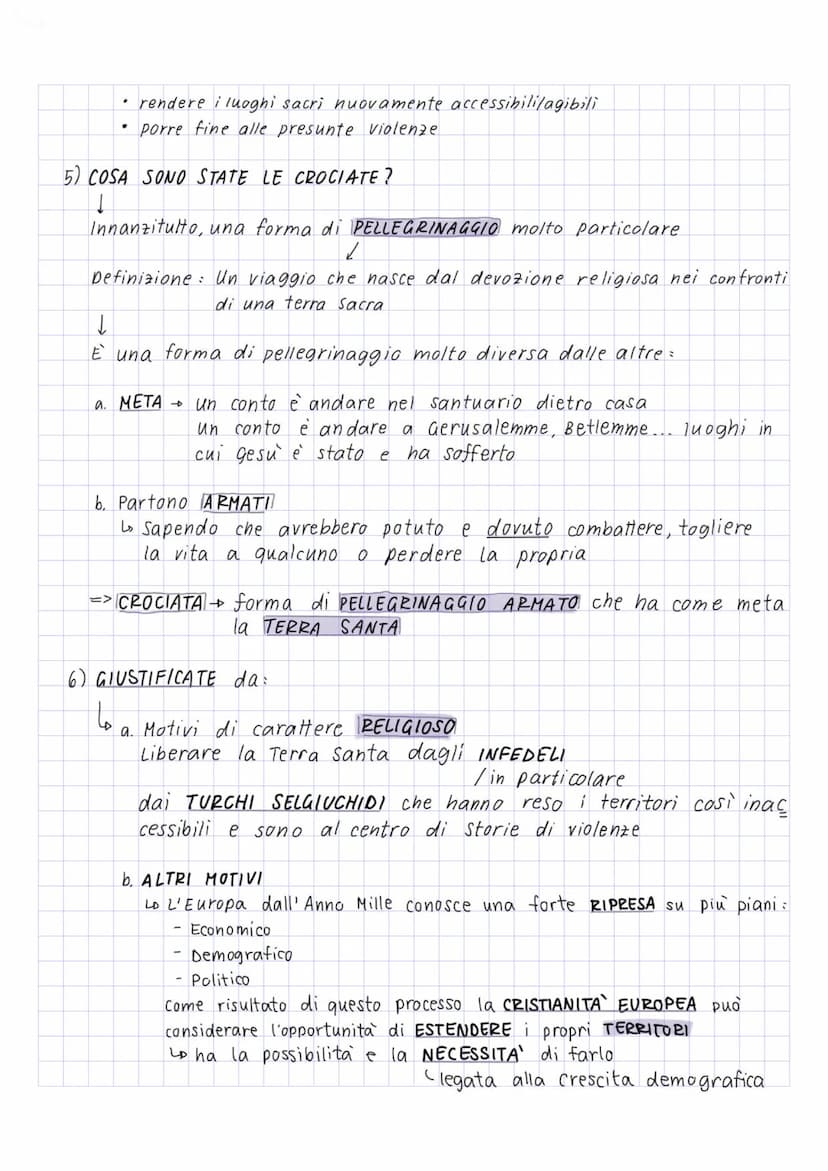 • rendere i luoghi sacri nuovamente accessibili/agibili
• porre fine alle presunte violenze
5) COSA SONO STATE LE CROCIATE?
↓
Innanzitutto, una forma di PELLEGRINAGGIO molto particolare
↙
Definizione: Un viaggio che nasce dal devozione religiosa nei confronti
di una terra sacra
↓
È una forma di pellegrinaggio molto diversa dalle altre:
a. META → un conto è andare nel santuario dietro casa
un conto è andare a Gerusalemme, Betlemme... luoghi in
cui gesù è stato e ha sofferto
b. Partono ARMATI
↳ Sapendo che avrebbero potuto e dovuto combattere, togliere
la vita a qualcuno o perdere la propria
=> CROCIATA → forma di PELLEGRINAGGIO ARMATO che ha come meta
la TERRA SANTA
6) GIUSTIFICATE da:
↳ a. Motivi di carattere RELIGIOSO
Liberare la Terra Santa dagli INFEDELI
/ in particolare
dai TURCHI SELGIUCHIDI che hanno reso i territori così inac
cessibili e sono al centro di storie di violenze
b. ALTRI MOTIVI
↳ L'Europa dall'Anno Mille conosce una forte RIPRESA su più piani:
- Economico
- Demografico
- Politico
Come risultato di questo processo la CRISTIANITÀ EUROPEA può
considerare l'opportunità di ESTENDERE i propri TERRITORI
↳ ha la possibilità e la NECESSITÀ di farlo
legata alla crescita demografica